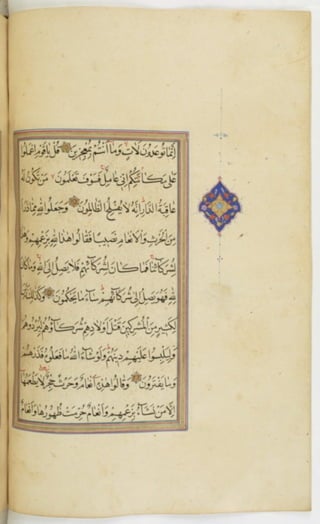 إنما توعدون لآت وما أنتم بمعجزين قل يا قوم اعملوا
على مكانتكم إني عامل فسوف تعلمون من تكون له
عاقبة الدار إنه لا يفلح الظالمون وجعلوا لله مما ذرأ
من الحرث والأنعام نصيبا فقالوا هذا لله بزعمهم وهذا
لشركائنا فما كان لشركائهم فلا يصل إلى الله وما كان
لله فهو يصل إلى شركائهم ساء ما يحكمون وكذلك زين
لكثير من المشركين قتل أولادهم شركاؤهم ليردوهم
وليلبسوا عليهم دينهم ولو شاء الله ما فعلوه فذرهم
وما يفترون وقالوا هذه أنعام وحرث حجر لا يطعمها
إلا من نشاء بزعمهم وأنعام حرمت ظهورها وأنعام